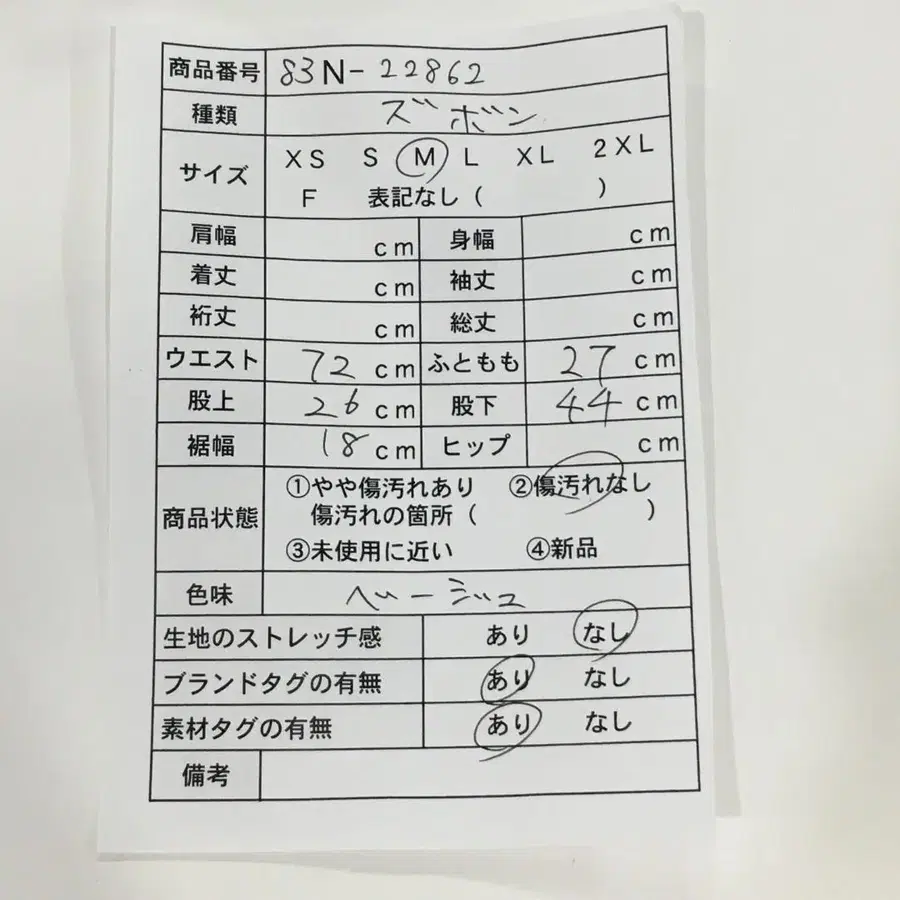 商品番号 83N-22862
種類 ズボン
サイズ XS S M L XL 2XL
F 表記なし( )
肩幅 cm 身幅 cm
着丈 cm 袖丈 cm
裄丈 cm 総丈 cm
ウエスト 72 cm ふともも 27 cm
股上 26 cm 股下 44 cm
裾幅 18 cm ヒップ cm
商品状態 ①やや傷汚れあり ②傷汚れなし
傷汚れの箇所( )
③未使用に近い ④新品
色味 ベージュ
生地のストレッチ感 あり なし
ブランドタグの有無 あり なし
素材タグの有無 あり なし
備考